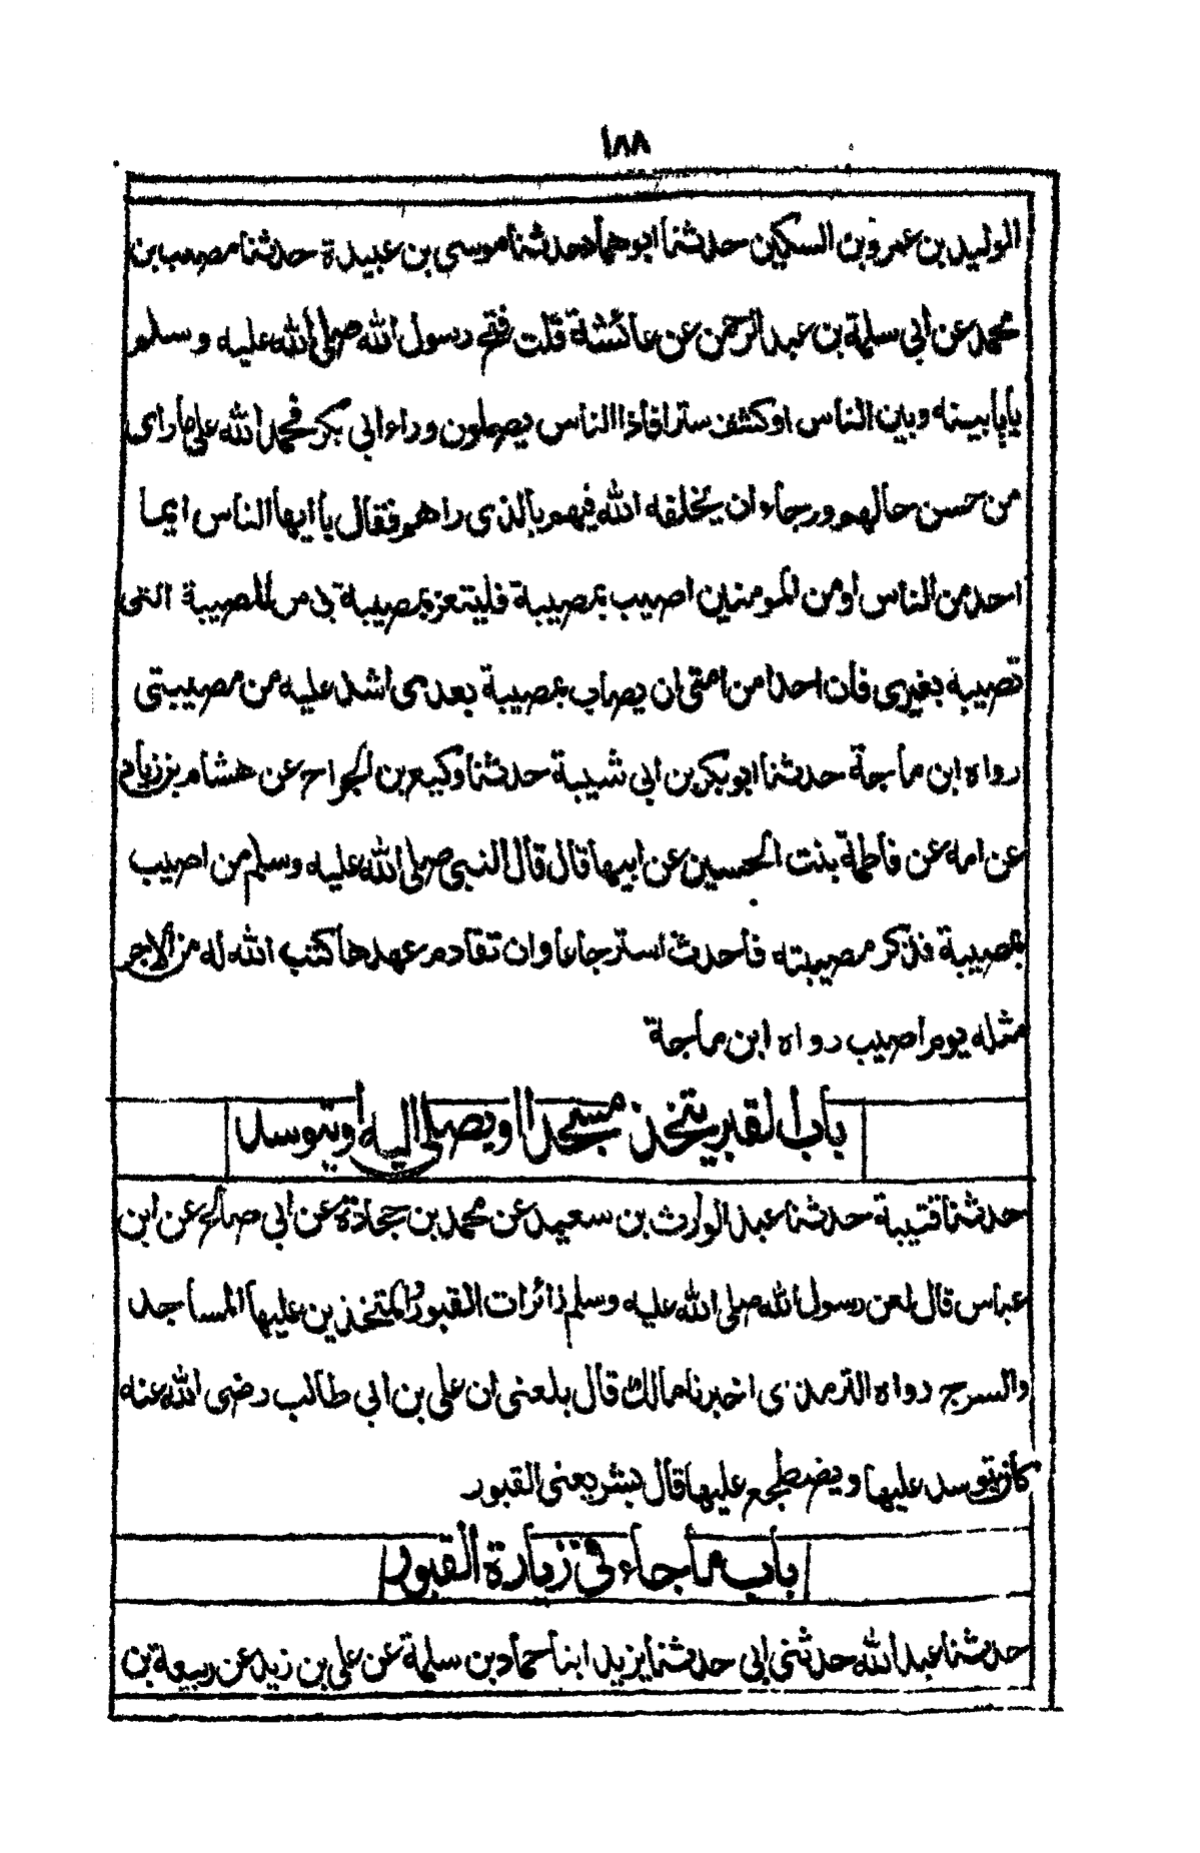 ١٨٨
الوليد بن عمرو بن السكين حدثنا ابو همام حدثنا موسى بن عبيدة حدثنا مصعب بن
محمد عن ابي سلمة بن عبد الرحمن عن عائشة قلت فتح رسول الله صلى الله عليه وسلم
بابا بينه وبين الناس او كشف سترا فاذا الناس يصلون وراء ابي بكر فحمد الله على ما راى
من حسن حالهم ورجاء ان يخلفه الله فيهم بالذى راهم فقال يا ايها الناس ايما
احد من الناس او من المومنين اصيب بمصيبة فليتعز بمصيبة بي من المصيبة التى
تصيبه بغيرى فان احدا من امتى ان يصاب بمصيبة بعدى اشد عليه من مصيبتى
رواه ابن ماجة حدثنا ابو بكر بن ابي شيبة حدثنا وكيع بن الجراح عن هشام بن زياد
عن امه عن فاطمة بنت الحسين عن ابيها قال قال النبي صلى الله عليه وسلم من اصيب
بمصيبة فذكر مصيبته فأحدث استرجاعا وان تقادم عهدها كتب الله له من الاجر
مثله يوم اصيب رواه ابن ماجة
باب القبر يتخذ مسجدا او يصلى اليه او يتوسد
حدثنا قتيبة حدثنا عبد الوارث بن سعيد عن محمد بن جحادة عن ابي صالح عن ابن
عباس قال لعن رسول الله صلى الله عليه وسلم زائرات القبور والمتخذين عليها المساجد
والسرج رواه الترمذى اخبرنا مالك قال بلغنى ان على بن ابي طالب رضى الله عنه
كان يتوسد عليها ويضطجع عليها قال بشر يعنى القبور
باب ما جاء في زيارة القبور
حدثنا عبد الله حدثنى ابي حدثنا يزيد ابنا حماد بن سلمة عن على بن زيد عن ربيعة بن